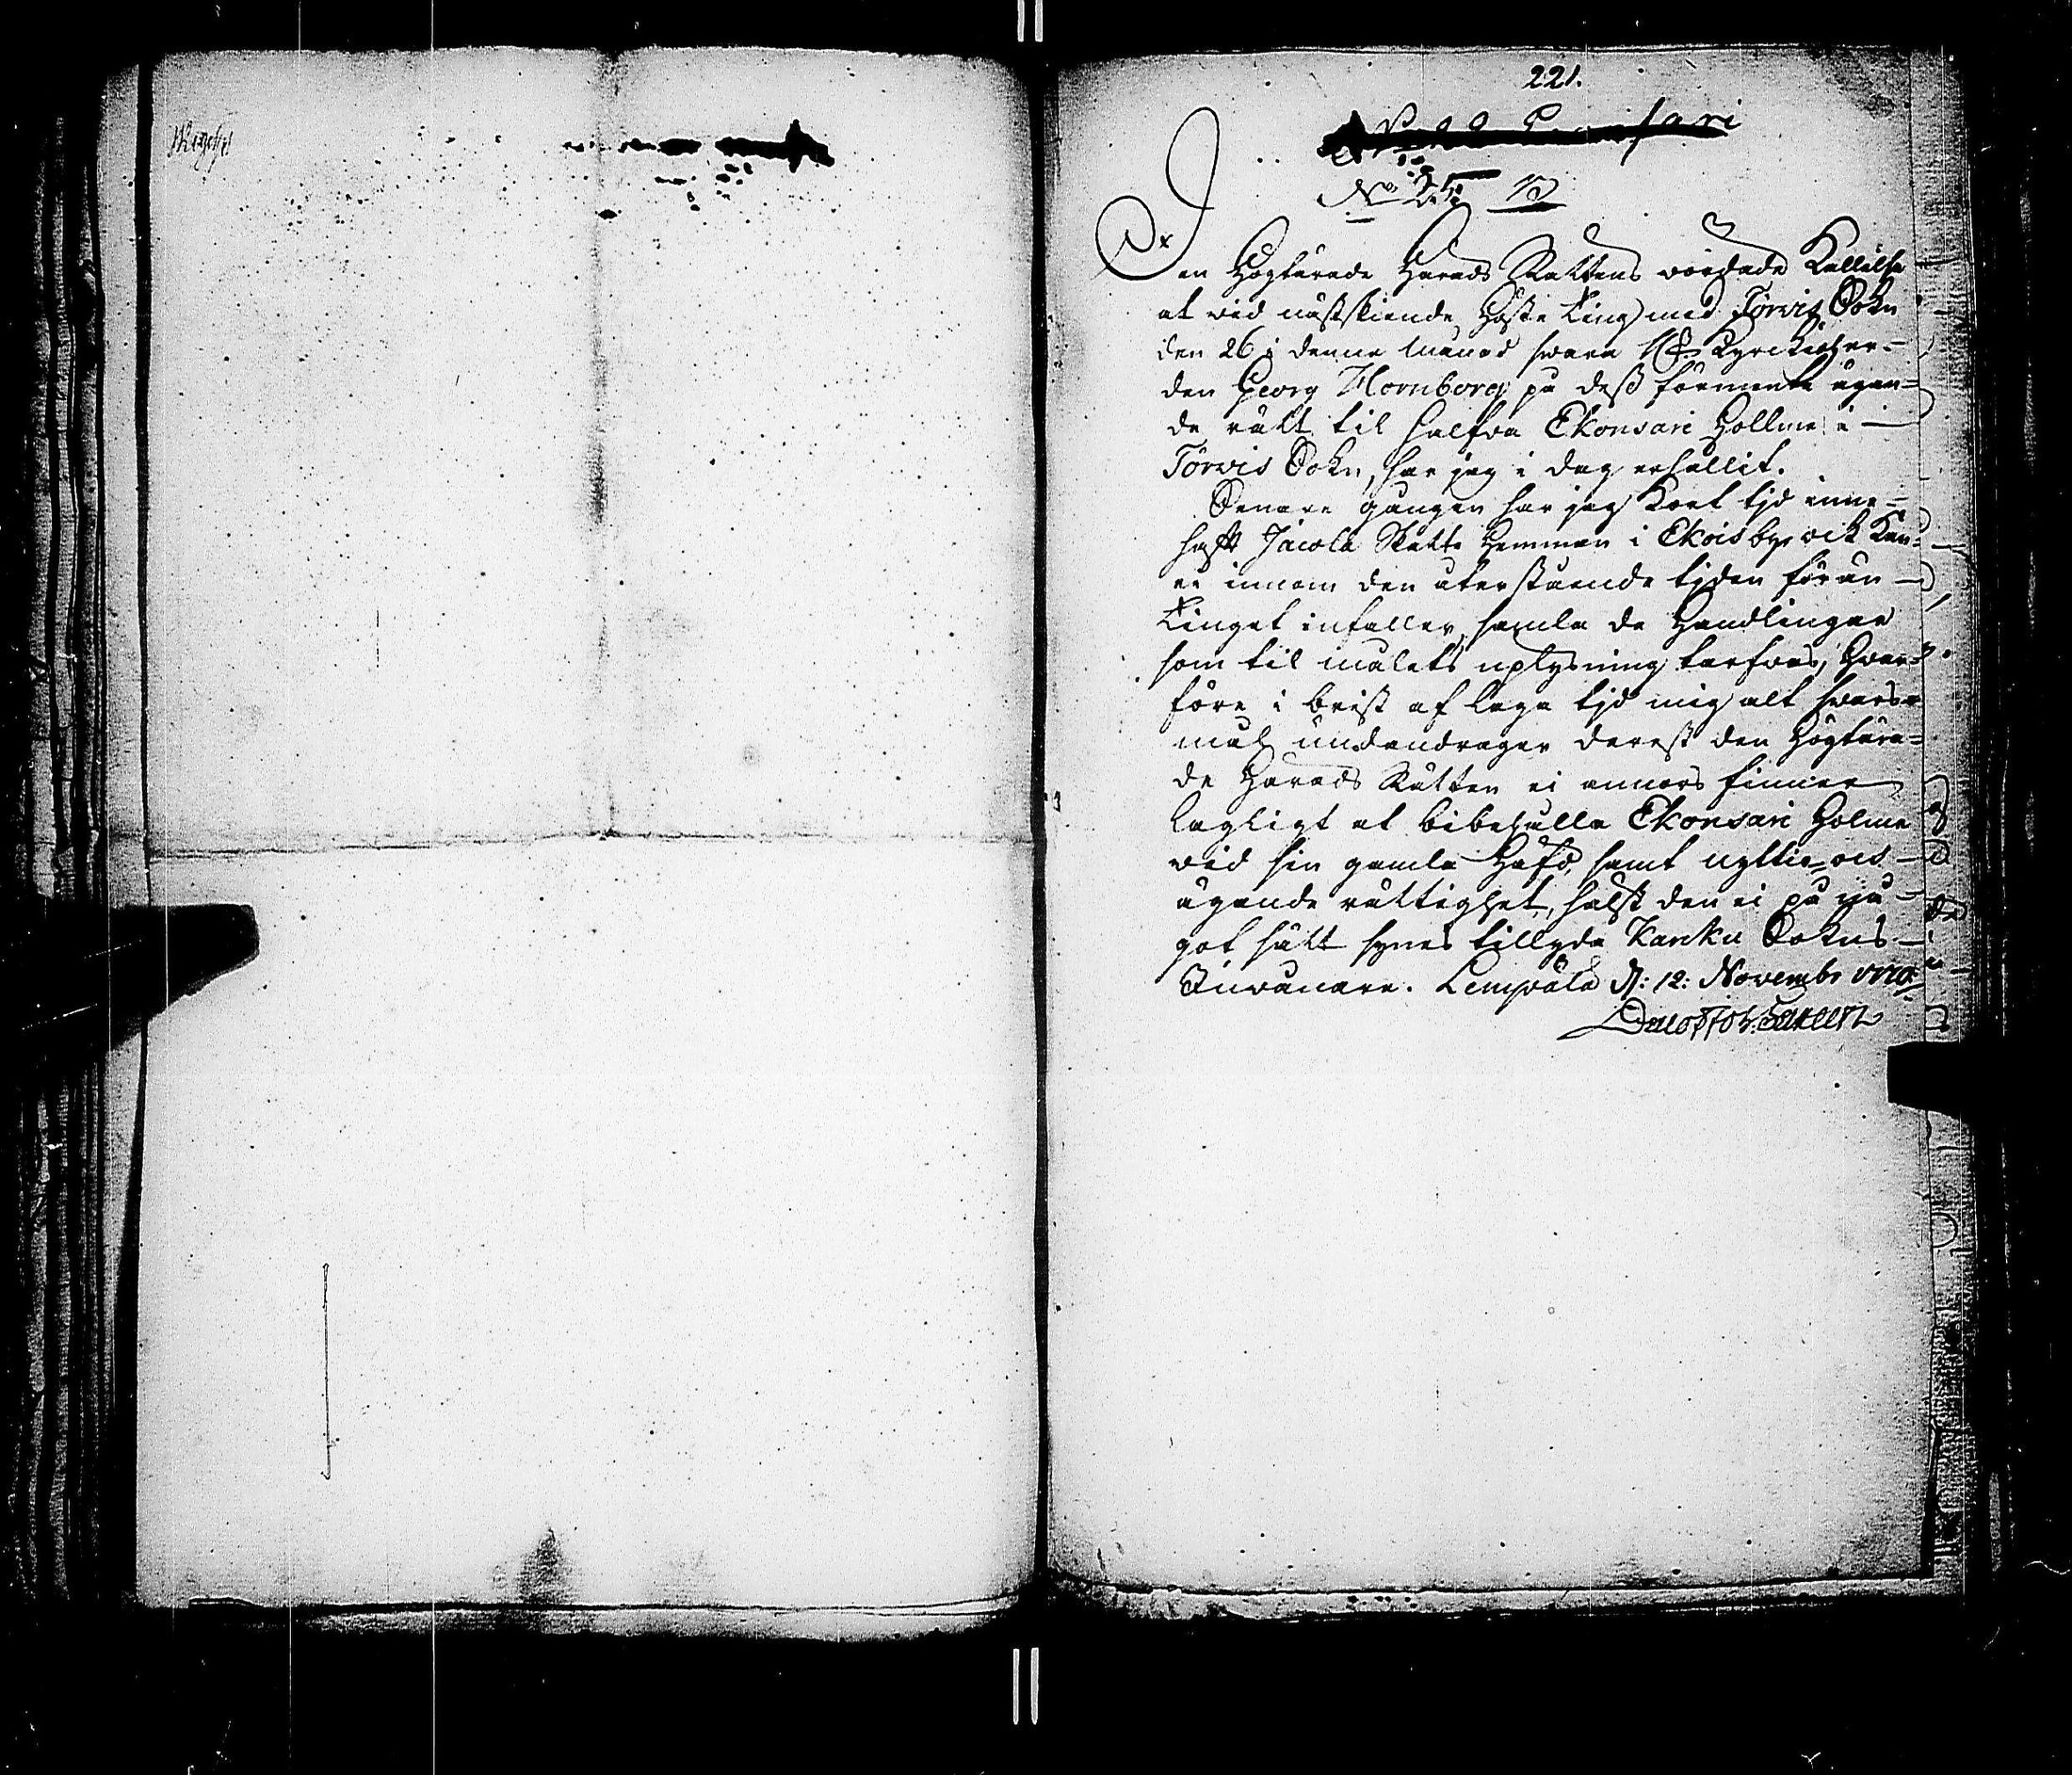 221.
No 25: 
Den Högtärade Härads Rättens wördade Kallelse
at wid näststkiende Höste Ting med Törwis Sokn
den 26 i denne månad swara Kyrckioher-
den Georg Hornborg på dess förmenta ägan-
de rätt til halfva Ekonsari Hollme i
Törwis Sokn, har jag i dag erhållit.
Senare gången har jag kort tjd inne-
haft Jacola Skatte Hemman i Ekois by ock kan
ei innom den återstående tjden förän
Tinget infaller, samla de Handlingar
som til målets uplysning tarfvas, Hvar-
före i brist af laga tjd mig alt swars-
mål undandrager derest den Högtära-
de Härads Rätten ei annors finner
lagligt at bibehålla Ekonsari Holme
wid sin gamla Häfd, samt nyttio- ock
ägande rättighet, hälst den ei på nå-
got sätt synes tillyda Karku Sokns
Inwånare. Lempälä d: 12: Novembr